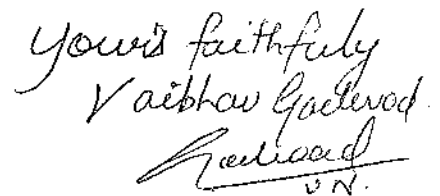 Yours faithfuly
Vaibhav Gaikwad
Gaikwad
V.N.